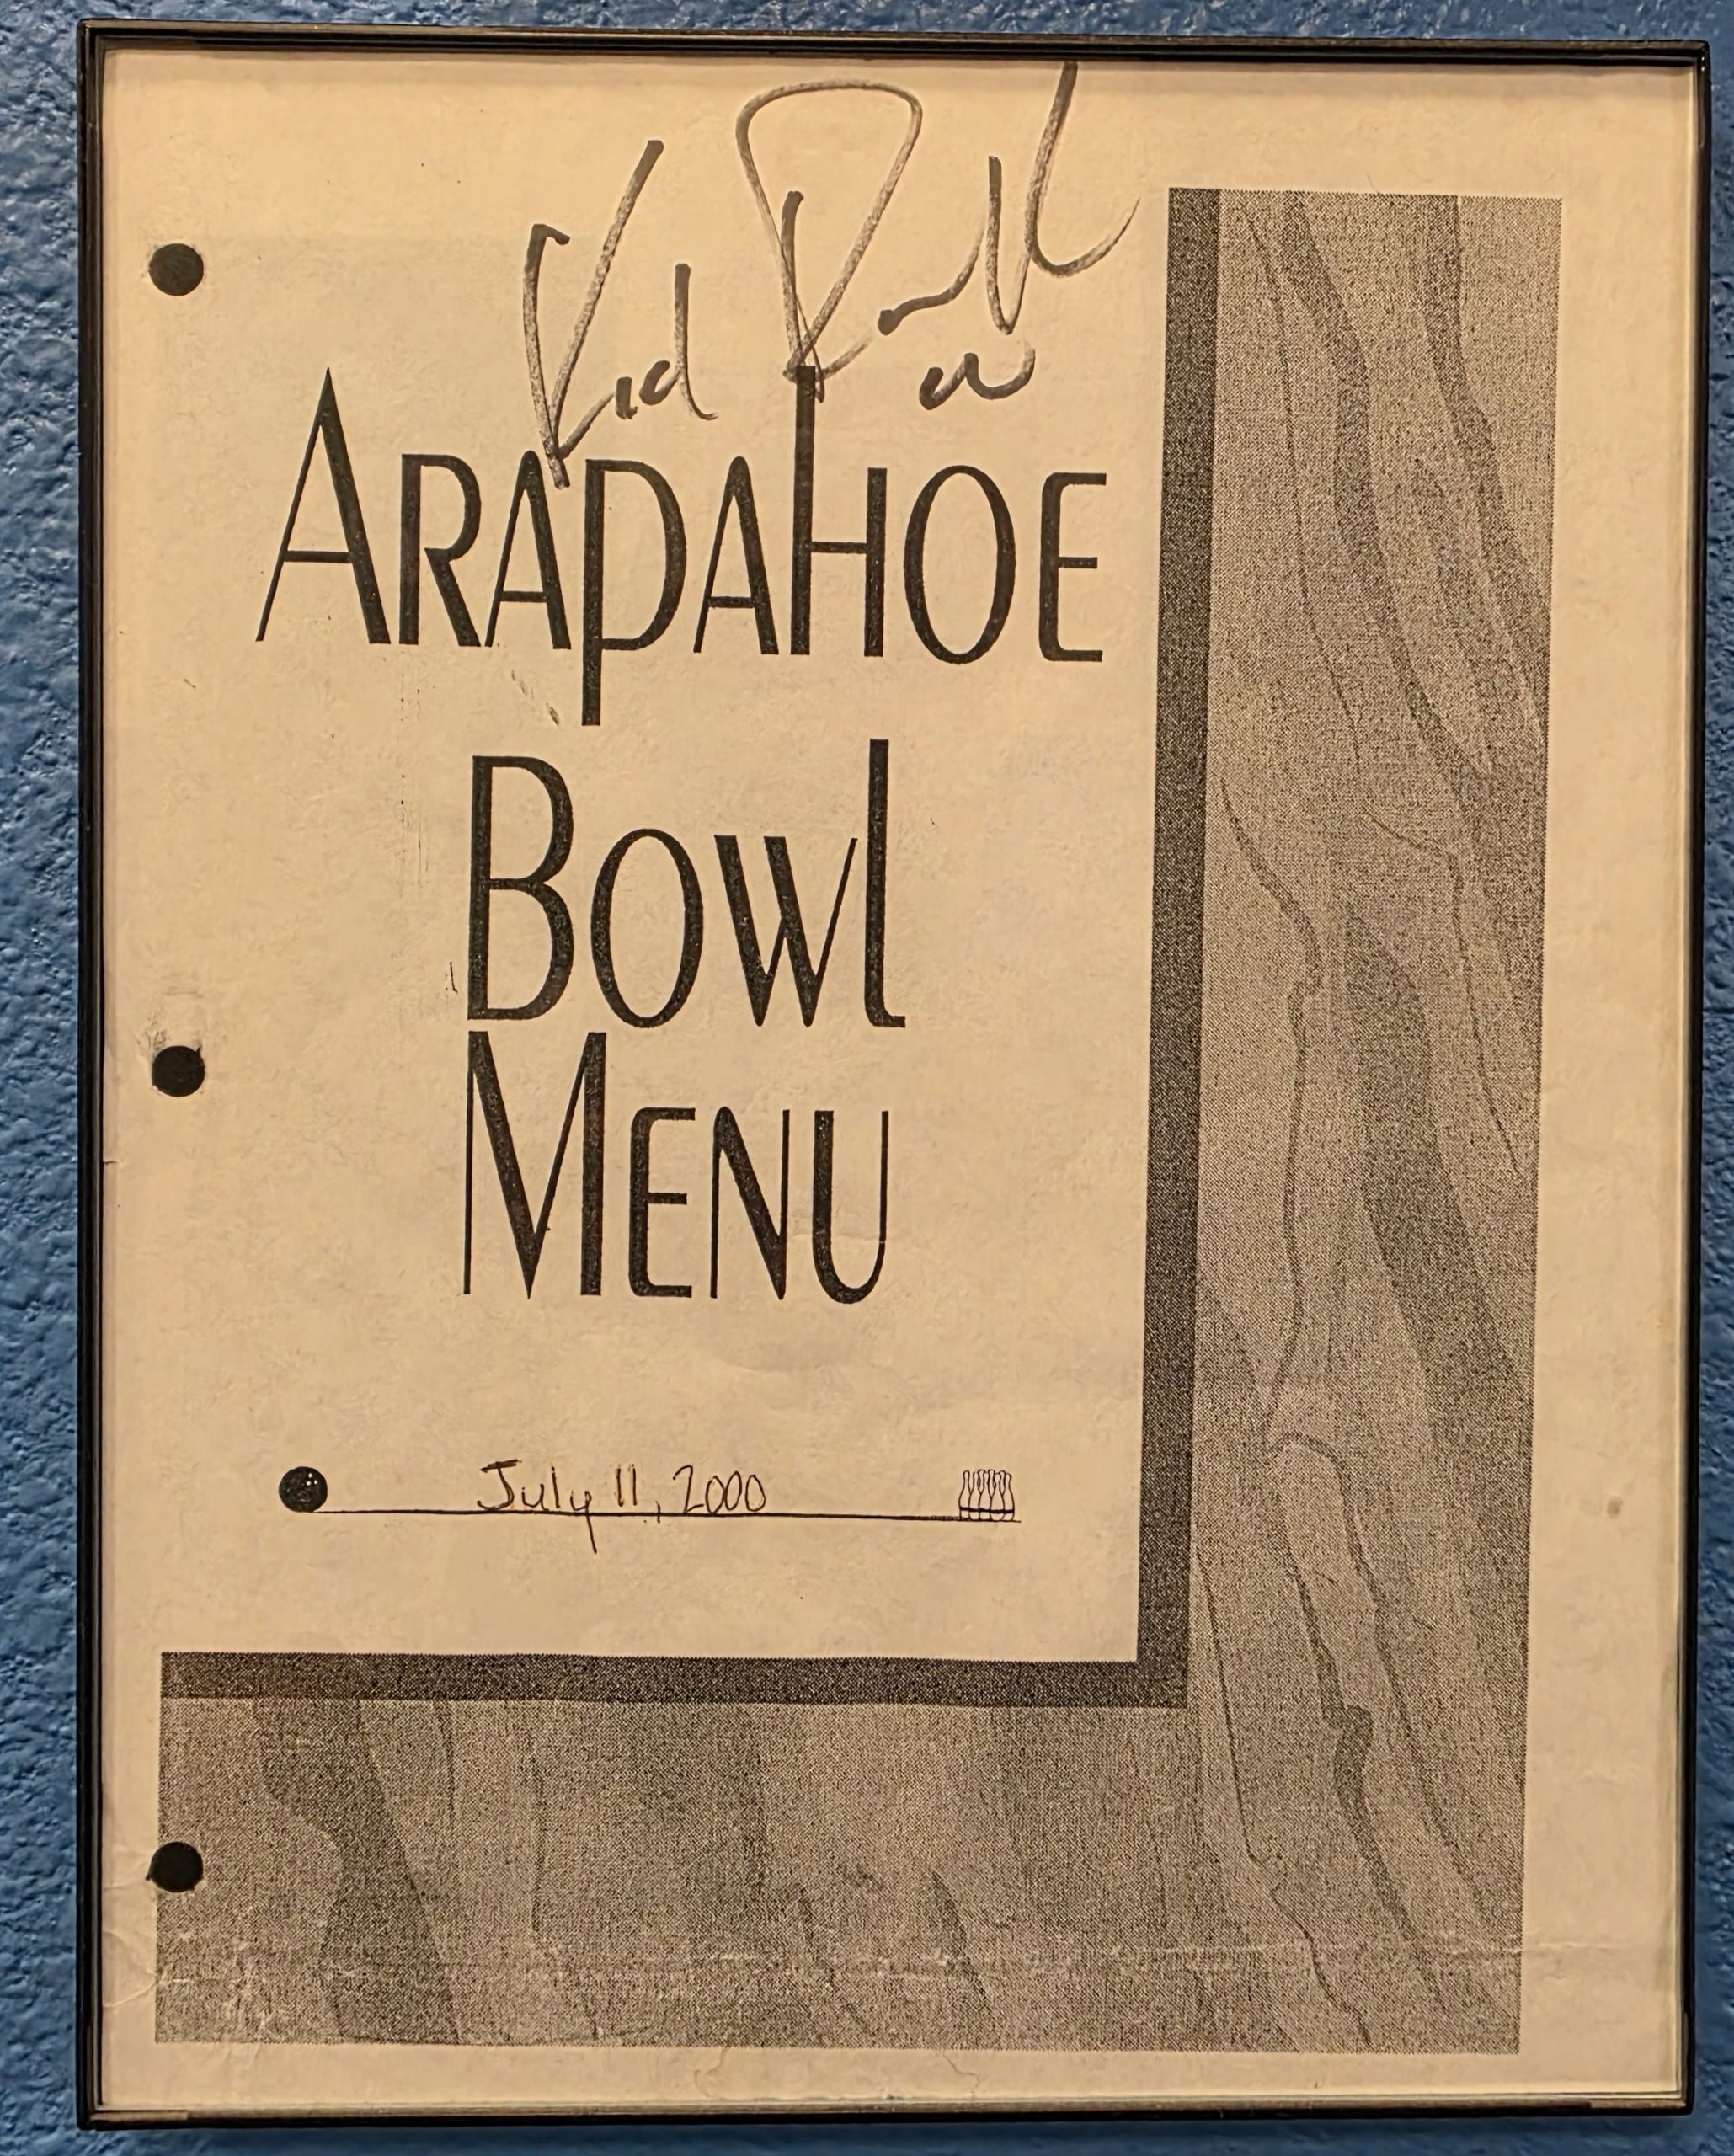 Kid Rock
00
ARAPAHOE
BOWL
MENU
July 11, 2000